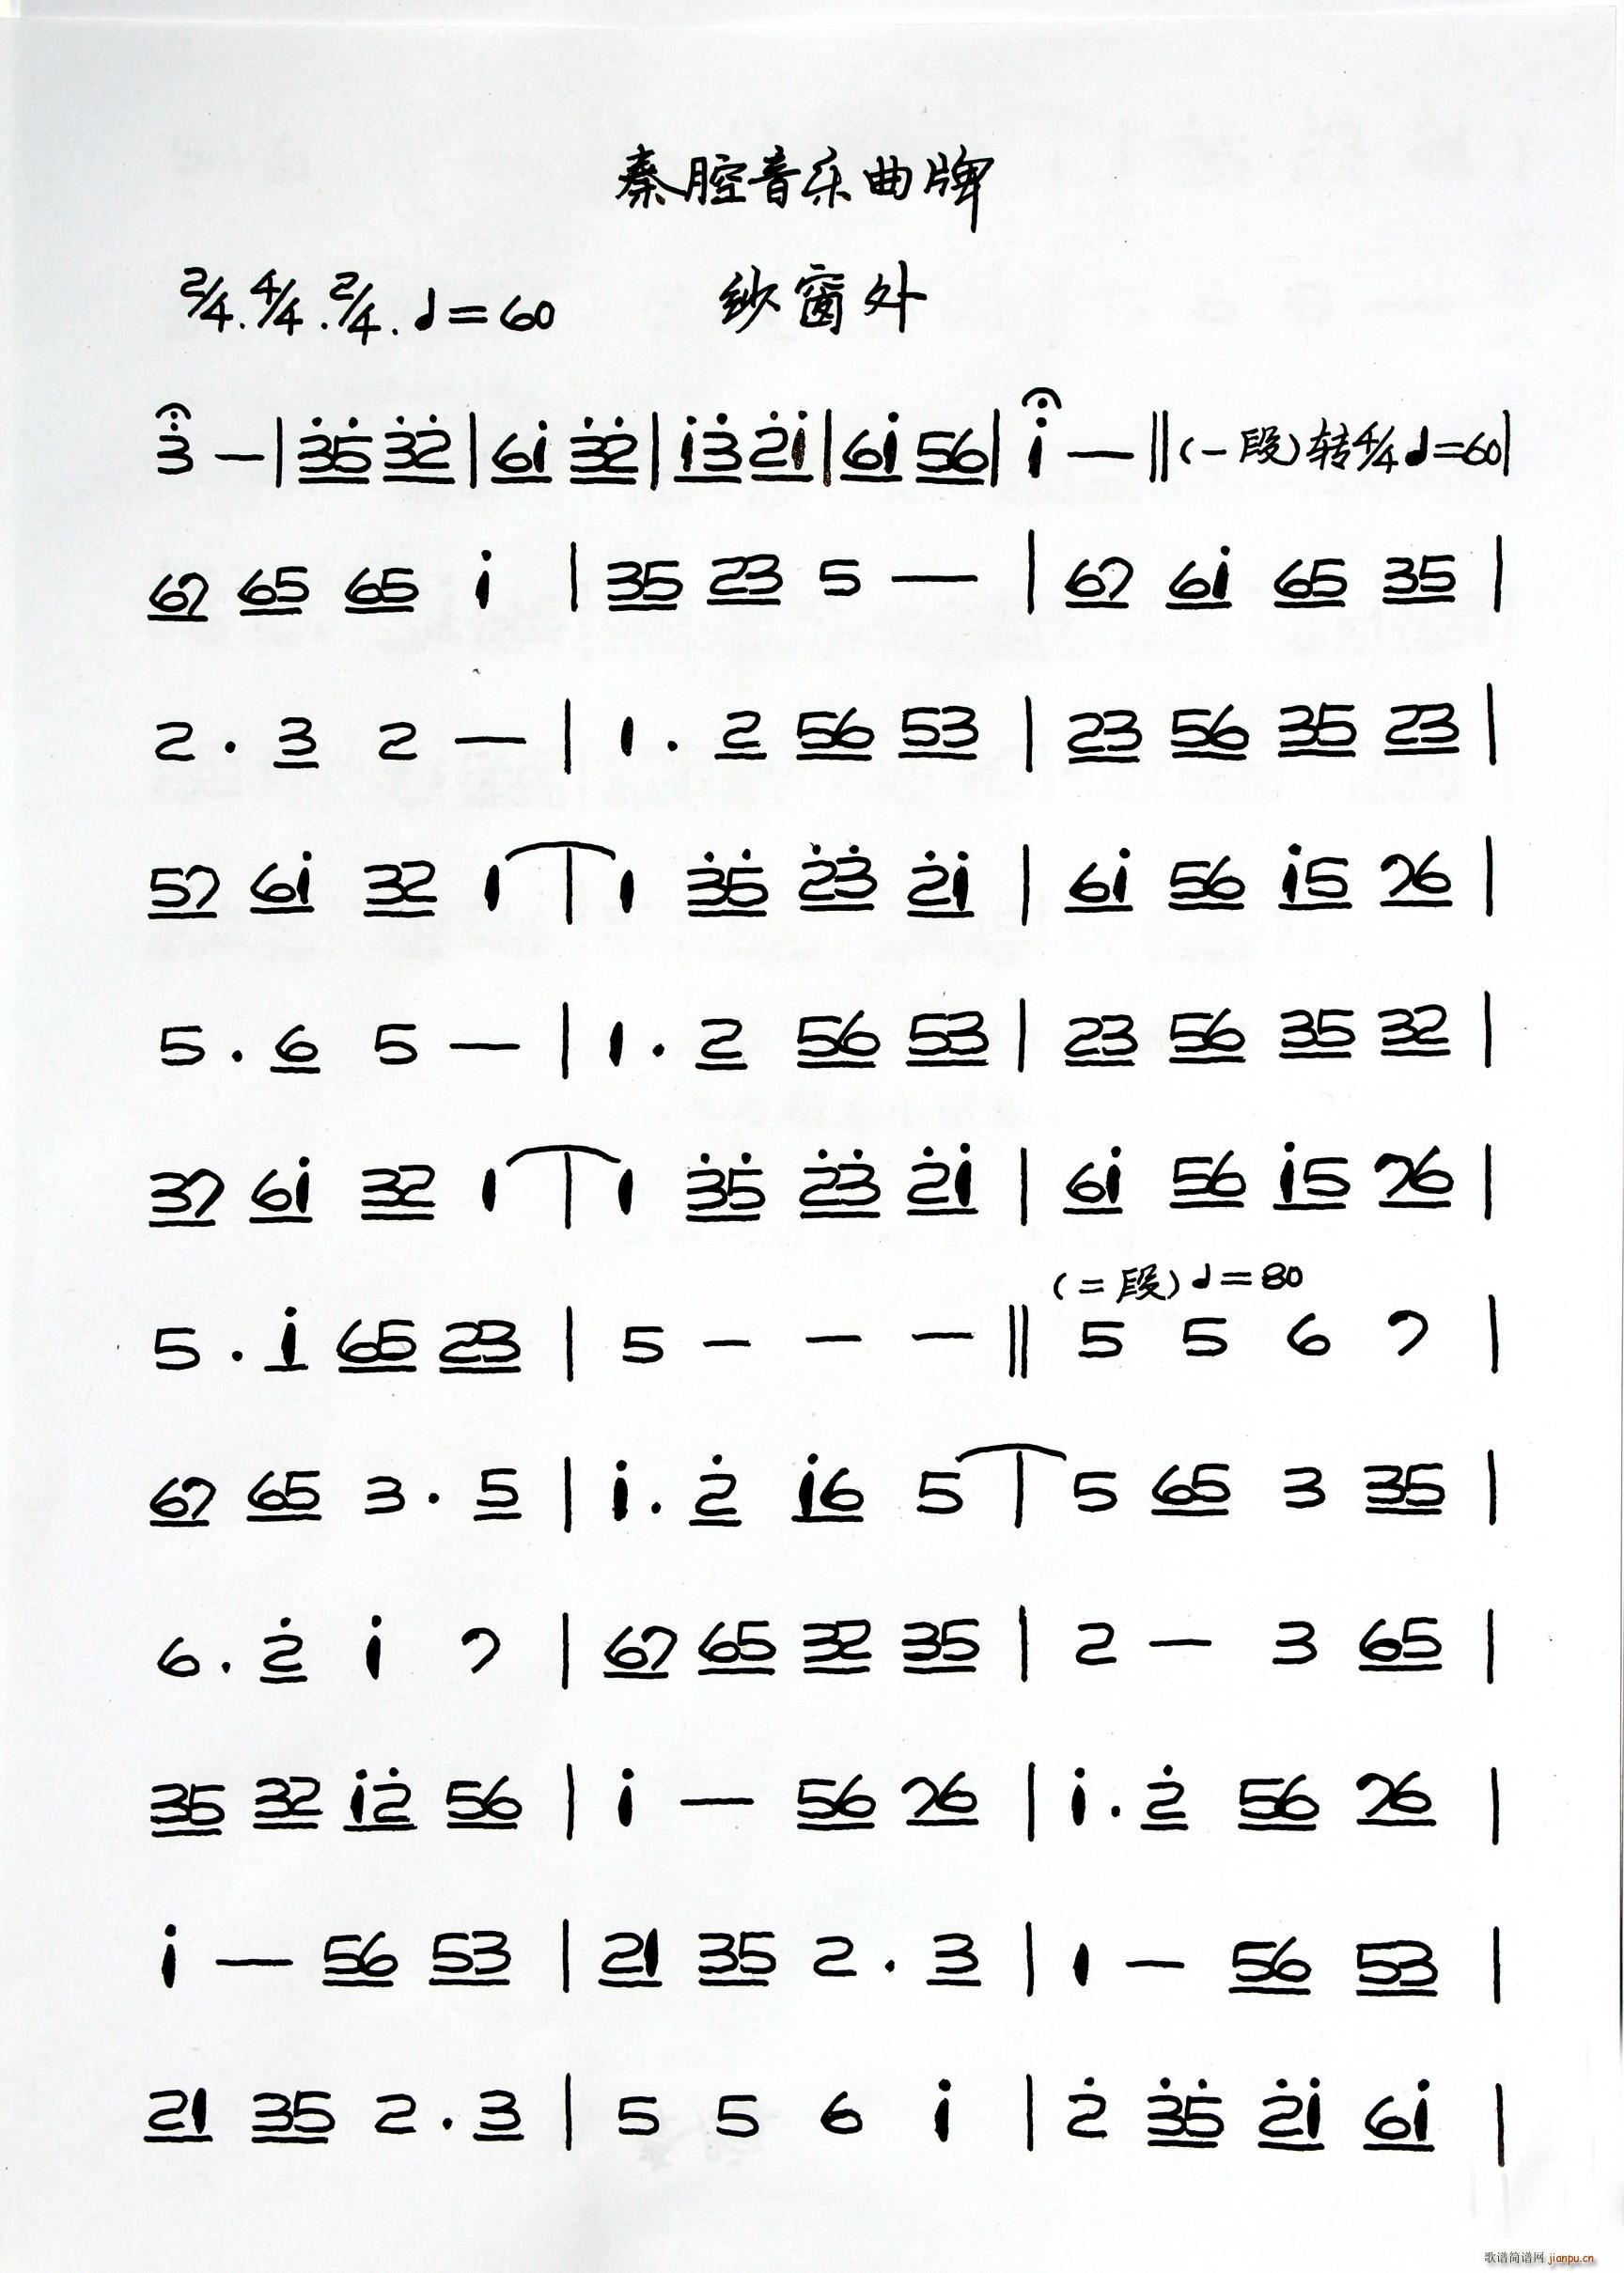 秦腔音乐曲牌
2/4.4/4.2/4.♩=60 纱窗外
3̇ — | 3̇5̇ 3̇2̇ | 61̇ 3̇2̇ | 1̇3̇ 2̇1̇ | 61̇ 56 | 1̇ — ‖ (一段)转4/4♩=60 |
67 65 65 1̇ | 35 23 5 — | 67 61̇ 65 35 |
2 . 3 2 — | 1 . 2 56 53 | 23 56 35 23 |
57 61̇ 32 1 | 1 3̇5̇ 2̇3̇ 2̇1̇ | 61̇ 56 1̇5 76 |
5 . 6 5 — | 1 . 2 56 53 | 23 56 35 32 |
37 61̇ 32 1 | 1 3̇5̇ 2̇3̇ 2̇1̇ | 61̇ 56 1̇5 76 |
(二段)♩=80
5 . 1̇ 65 23 | 5 — — — ‖ 5 5 6 7 |
67 65 3 . 5 | 1̇ . 2̇ 1̇6 5 | 5 65 3 35 |
6 . 2̇ 1̇ 7 | 67 65 32 35 | 2 — 3 65 |
35 32 1̇2̇ 56 | 1̇ — 56 76 | 1̇ . 2̇ 56 76 |
1̇ — 56 53 | 21 35 2 . 3 | 1 — 56 53 |
21 35 2 . 3 | 5 5 6 1̇ | 2̇ 3̇5̇ 2̇1̇ 61̇ |
歌谱简谱网 jianpu.cn